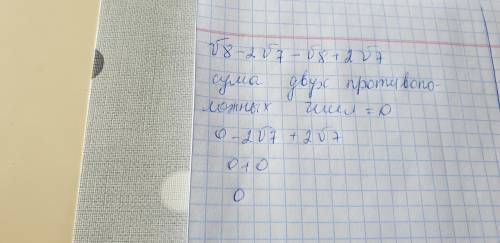 √8 - 2√7 - √8 + 2√7
сума двух противопо-
ложных чисел = 0
0 - 2√7 + 2√7
0 + 0
0